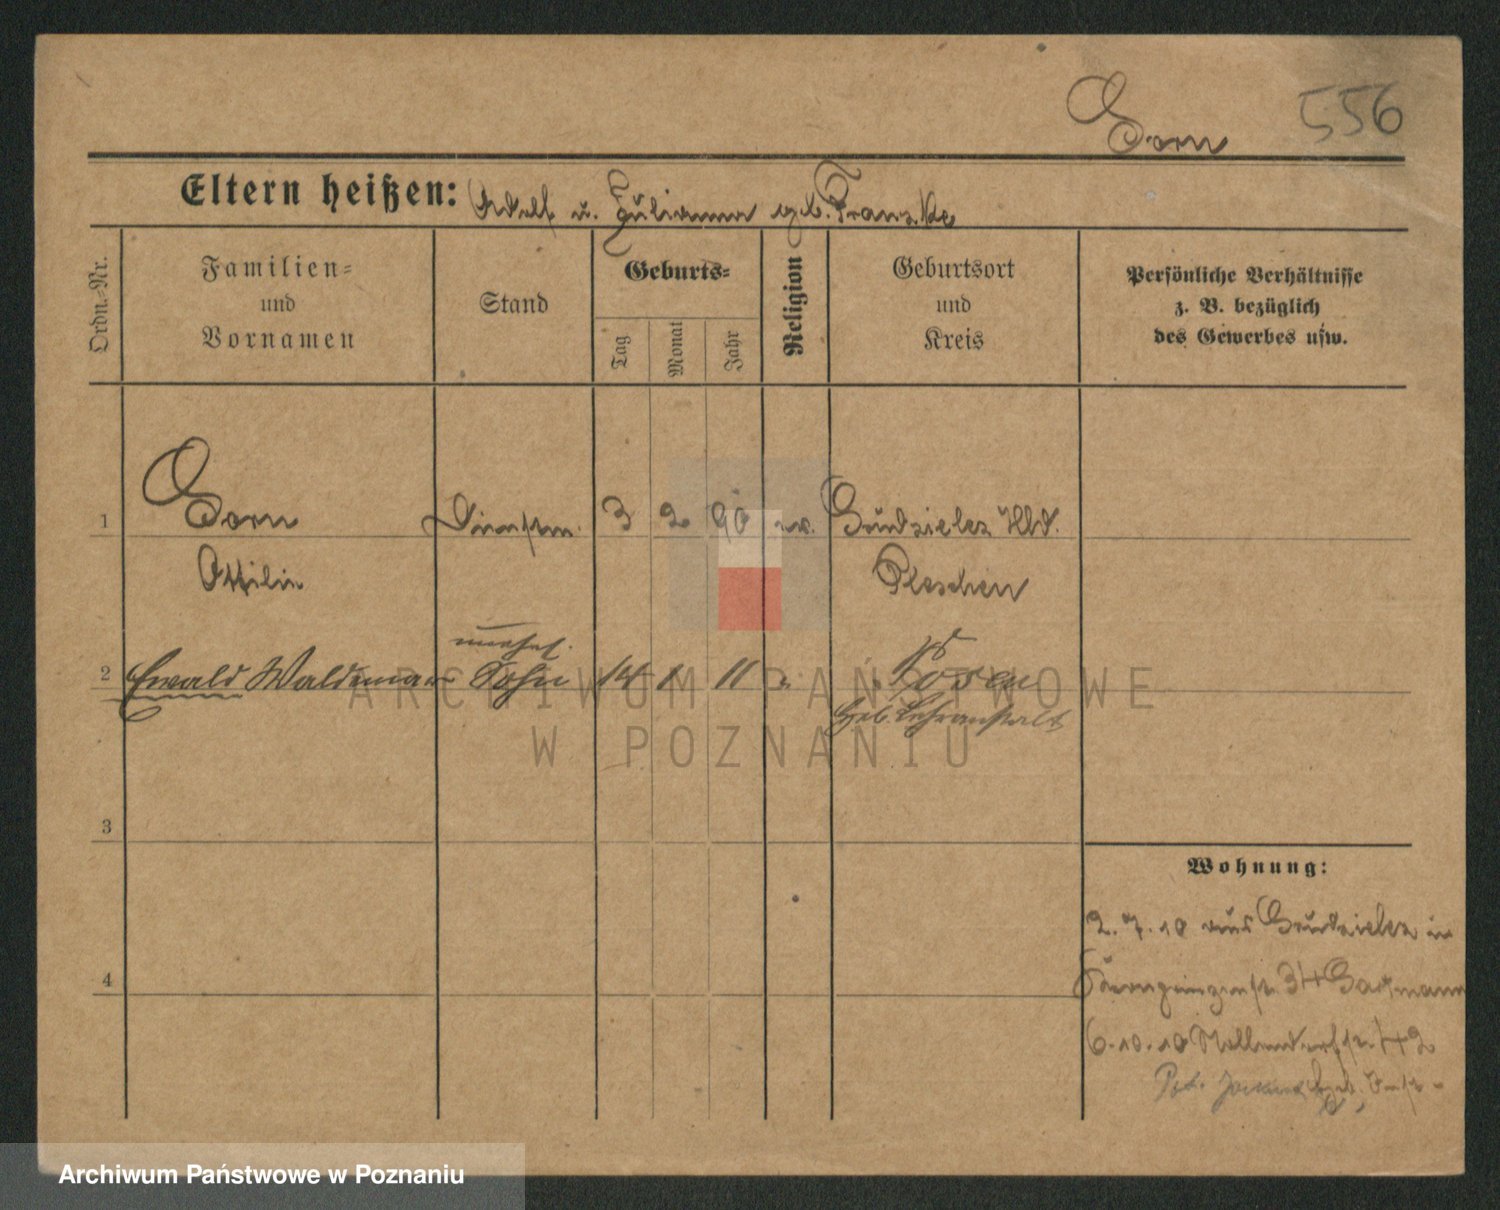 556
Sorn
Eltern heißen: Adolf u. Julianna geb. Franzke
Ordn.-Nr.
Familien-
und
Vornamen
Stand
Geburts-
Tag
Monat
Jahr
Religion
Geburtsort
und
Kreis
Persönliche Verhältnisse
z. B. bezüglich
des Gewerbes usw.
1 Sorn Dienstm. 3 2 90 ev. Grudzielez Hld.
Ottilie Pleschen
unehel.
2 Ewald Waldemar Sohn 14 1 11 Posen
Heb. Lehranstalt
3
Wohnung:
2.7.10 aus Grudzielez in
4
Kronprinzenstr. 34
6.10.10 Nollendorfstr. 42
ARCHIWUM PAŃSTWOWE
W POZNANIU
Archiwum Państwowe w Poznaniu